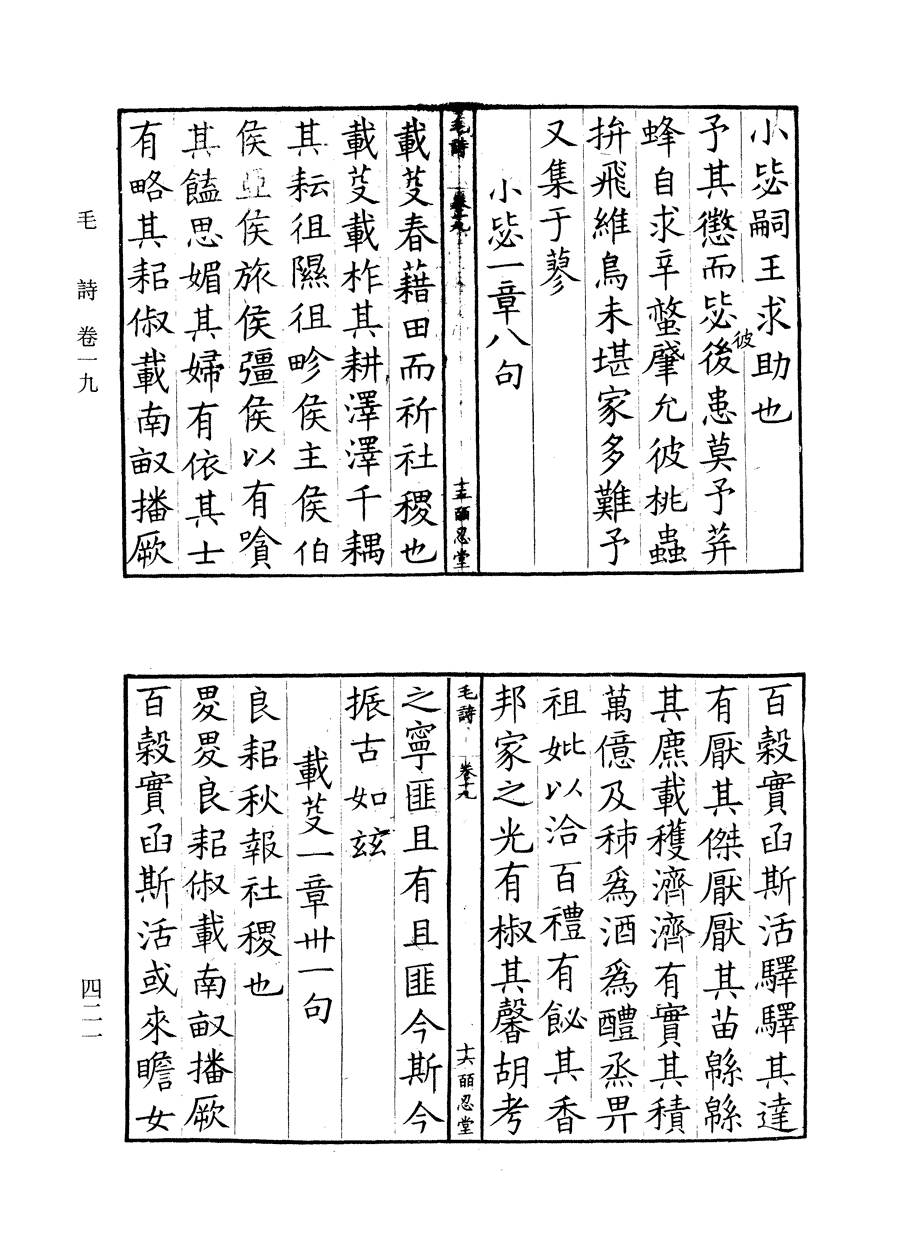 小毖嗣王求助也
予其懲而毖後患莫予荓
彼
蜂自求辛螫肇允彼桃蟲
拚飛維鳥未堪家多難予
又集于蓼
小毖一章八句
毛詩 卷十九 十五 皕忍堂
載芟春藉田而祈社稷也
載芟載柞其耕澤澤千耦
其耘徂隰徂畛侯主侯伯
侯亞侯旅侯彊侯以有嗿
其饁思媚其婦有依其士
有略其耜俶載南畝播厥
百穀實函斯活驛驛其達
有厭其傑厭厭其苗緜緜
其麃載穫濟濟有實其積
萬億及秭爲酒爲醴烝畀
祖妣以洽百禮有飶其香
邦家之光有椒其馨胡考
毛詩 卷十九 十六 皕忍堂
之寧匪且有且匪今斯今
振古如玆
載芟一章卅一句
良耜秋報社稷也
畟畟良耜俶載南畝播厥
百穀實函斯活或來瞻女
毛詩 卷一九
四二一